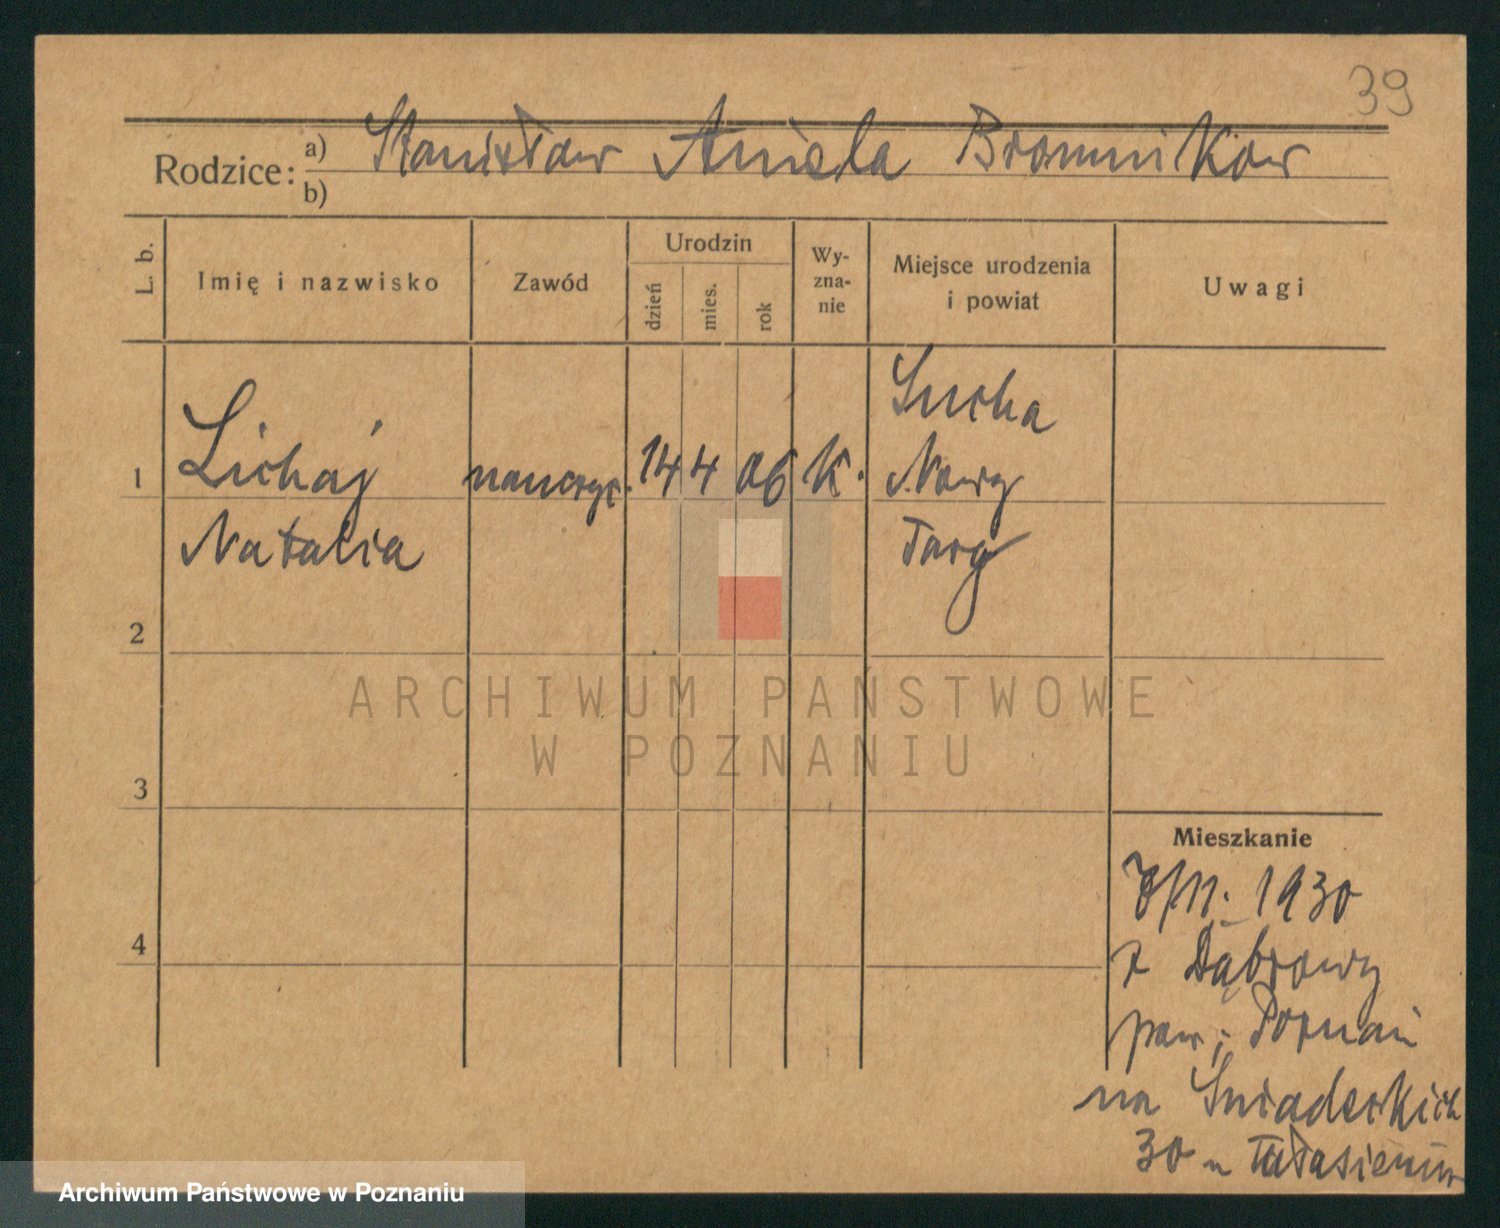 39
Rodzice: a) Stanisław Aniela Bromnikow
b)
L. b.
Imię i nazwisko
Zawód
Urodzin
dzień
mies.
rok
Wy-
zna-
nie
Miejsce urodzenia
i powiat
Uwagi
1
Lichaj
Natalia
nauczyc.
14
4
06
K.
Sucha
Nowy
Targ
2
3
4
Mieszkanie
1930
z Dąbrowy
pow. Poznań
na Śniadeckich
30 u
ARCHIWUM PAŃSTWOWE
W POZNANIU
Archiwum Państwowe w Poznaniu